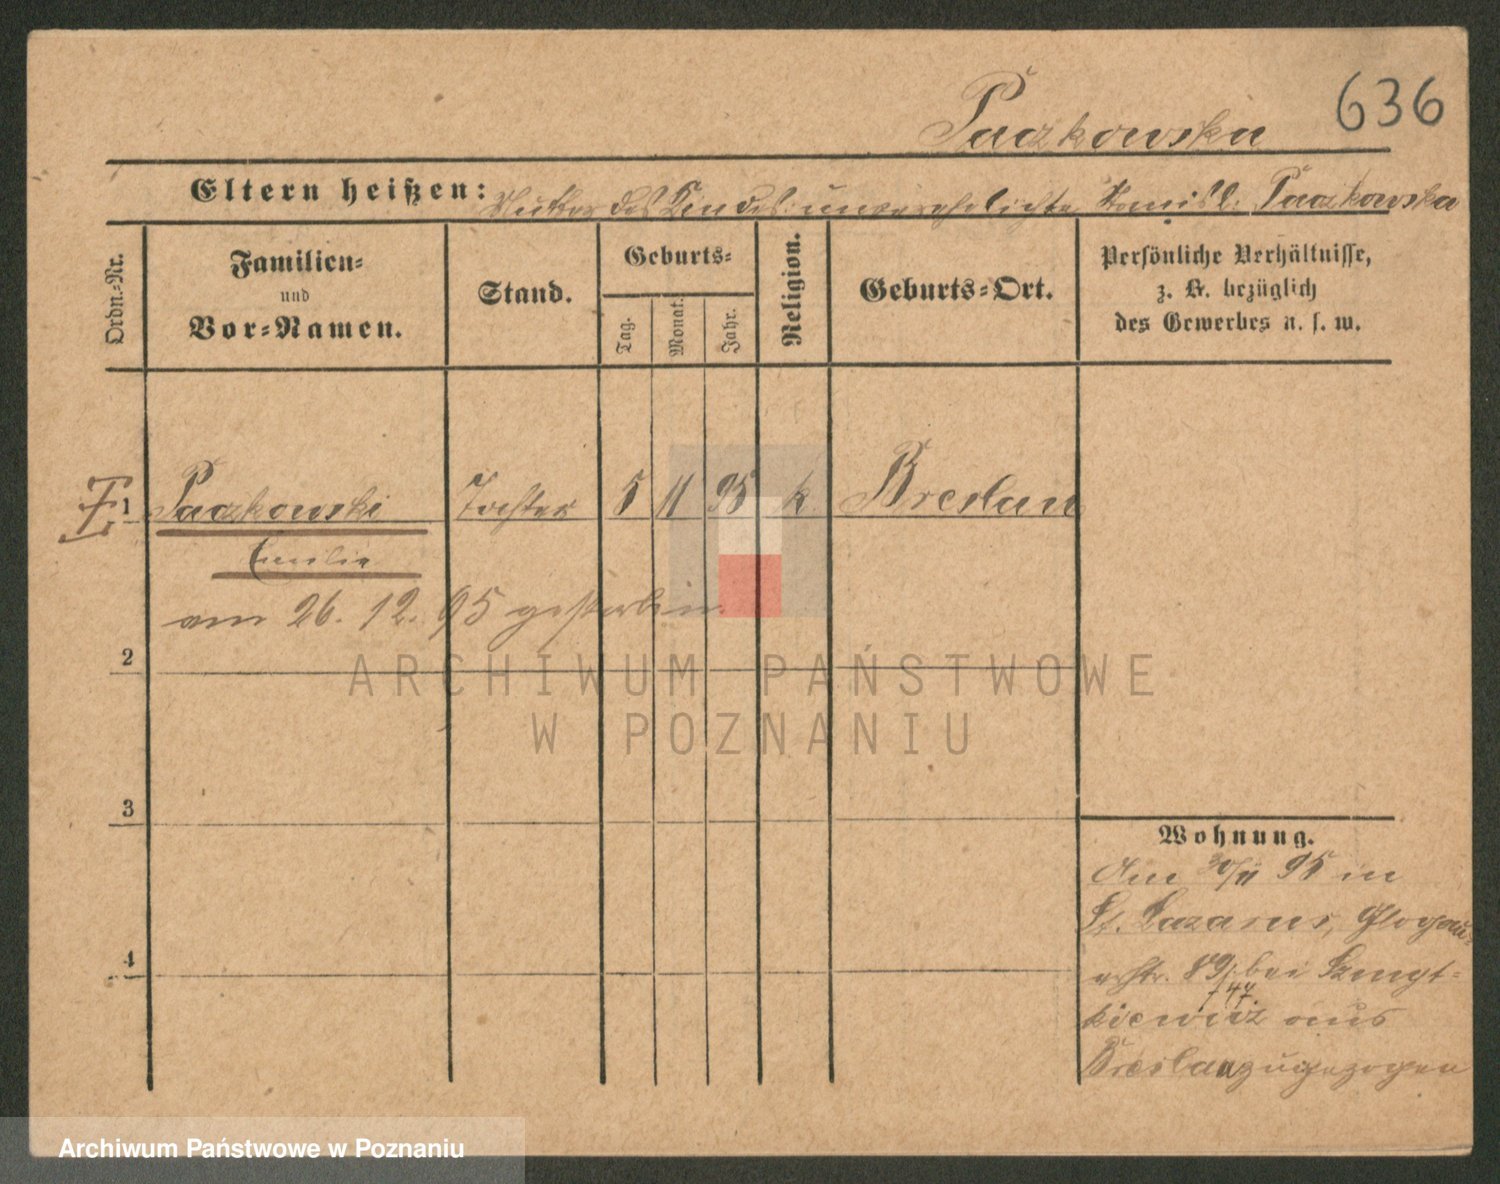 636
Paczkowska
Eltern heißen: Mutter des Kindes: unverehelichte Paczkowska
Ordn.-Nr.
Familien-
und
Vor-Namen.
Stand.
Geburts-
Tag.
Monat.
Jahr.
Religion.
Geburts-Ort.
Persönliche Verhältnisse,
z. B. bezüglich
des Gewerbes u. s. w.
1 Paczkowski Tochter 5 11 95 k Breslau
Emilie
am 26. 12. 95 gestorben.
2
ARCHIWUM PAŃSTWOWE
W POZNANIU
3
4
Wohnung.
Am 30/11 95 in
St. Lazarus, Glogau-
erstr. 89, bei
aus
Breslau zugezogen
Archiwum Państwowe w Poznaniu